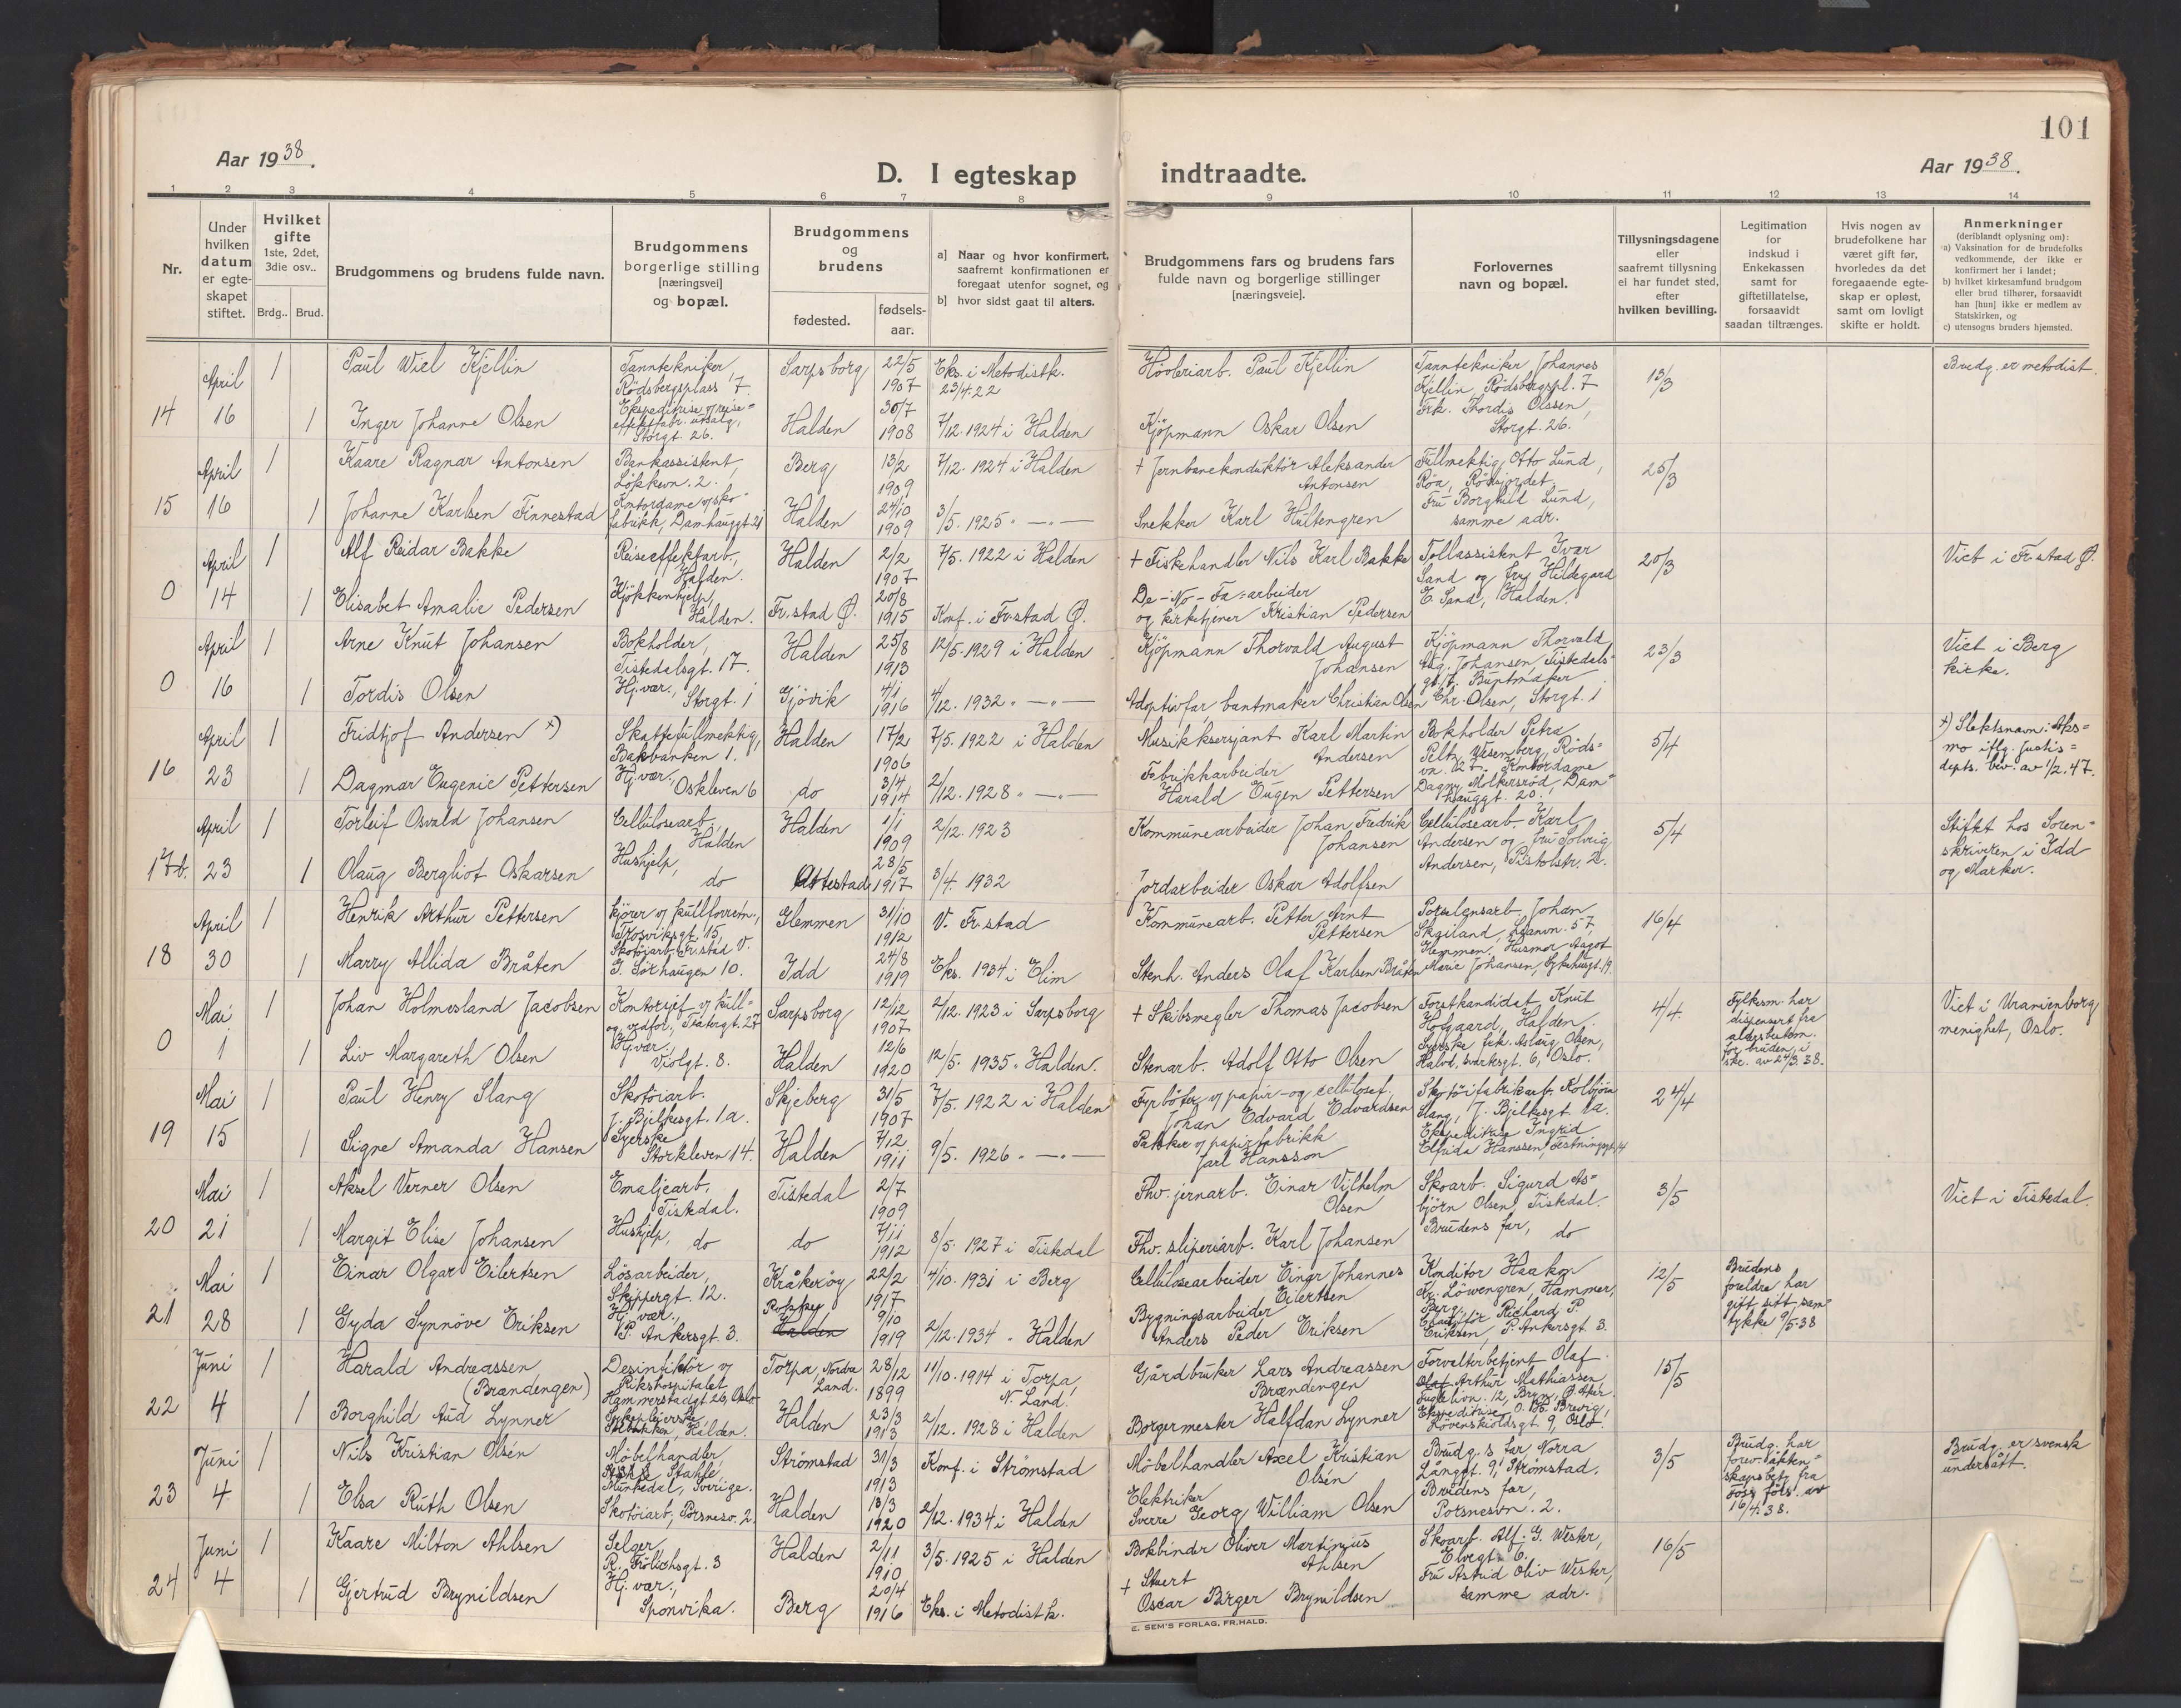 101
Aar 1938.
D. I egteskap indtraadte.
Aar 1938.
1 2 3 4 5 6 7 8 9 10 11 12 13 14
Nr.
Under hvilken datum er egteskapet stiftet.
Hvilket gifte 1ste, 2det, 3die osv..
Brdg.. Brud.
Brudgommens og brudens fulde navn.
Brudgommens borgerlige stilling [næringsvei] og bopæl.
Brudgommens og brudens
fødested.
fødsels-aar.
a] Naar og hvor konfirmert, saafremt konfirmationen er foregaat utenfor sognet, og
b] hvor sidst gaat til alters.
Brudgommens fars og brudens fars fulde navn og borgerlige stillinger [næringsveie].
Forlovernes navn og bopæl.
Tillysningsdagene eller saafremt tillysning ei har fundet sted, efter hvilken bevilling.
Legitimation for indskud i Enkekassen samt for giftetillatelse, forsaavidt saadan tiltrænges.
Hvis nogen av brudefolkene har været gift før, hvorledes da det foregaaende egteskap er opløst, samt om lovligt skifte er holdt.
Anmerkninger (deriblandt oplysning om):
a) Vaksination for de brudefolks vedkommende, der ikke er konfirmert her i landet;
b) hvilket kirkesamfund brudgom eller brud tilhører, forsaavidt han [hun] ikke er medlem av Statskirken, og
c) utensogns bruders hjemsted.
14 April 16 1 Paul Wiel Kjellin Tanntekniker, Rödsbergsplass 7. Sarpsborg 22/5 1907 Eks. i Metodistk. 23/4.22 Høvleriarb. Paul Kjellin Tanntekniker Johannes Kjellin, Rödsbergpl. 7 13/3 Brudg. er metodist.
1 Inger Johanne Olsen Ekspeditrise v/ reiseeffektfabr. utsalg, Storgt. 26. Halden 30/7 1908 7/12. 1924 i Halden Kjöpmann Oskar Olsen Frk. Thordis Olssen, Storgt. 26.
15 April 16 1 Kaare Ragnar Antonsen Bankassistent, Lökkevn. 2. Berg 13/2 1909 7/12. 1924 i Halden + Jernbanekonduktör Aleksander Antonsen Fullmektig Otto Lund, Röa, Rödsjordet 25/3
1 Johanne Karlsen Finnestad Kontordame v/ skofabrikk, Damhauggt. 21 Halden 24/10 1909 3/5. 1925 " — " — Snekker Karl Hultengren Fru Borghild Lund, samme adr.
0 April 14 1 Alf Reidar Bakke Reiseeffektarb., Halden. Halden 2/2 1907 7/5. 1922 i Halden + Fiskehandler Nils Karl Bakke Tollassistent Ivar Sand og fru Hildegard E. Sand, Halden. 20/3 Viet i Fr.stad Ø.
1 Elisabet Amalie Pedersen Kjökkenhjelp, Halden. Fr.stad Ø. 20/8 1915 Konf. i Fr.stad Ø. De-No-Fa=arbeider og kirketjener Kristian Pedersen
0 April 16 1 Arne Knut Johansen Bokholder, Tistedalsgt. 17. Halden 25/8 1913 12/5. 1929 i Halden Kjöpmann Thorvald August Johansen Kjöpmann Thorvald Aug. Johansen, Tistedalsgt. 17. Buntmaker 23/3 Viet i Berg kirke.
1 Tordis Olsen Hj.vær., Storgt. 1 Gjövik 4/1 1916 4/12. 1932 " — " — Adoptivfar, buntmaker Christian Olsen Chr. Olsen, Storgt. 1
16 April 23 1 Fridtjof Andersen x) Skattefullmektig, Bakbanken 1. Halden 17/2 1906 7/5. 1922 i Halden Musikksersjant Karl Martin Andersen Bokholder Petra Wesenberg, Rödsvn. 5/4 x) Slektsnavn: Aksmo iflg. justisdepts. bev. av 1/2. 47.
1 Dagmar Eugenie Pettersen Hj.vær, Oskleven 6 do 3/4 1914 2/12. 1928 " — " — Fabrikkarbeider Harald Eugen Pettersen Kontordame Dagny Molkersröd, Damhauggt. 20.
17b. April 23 1 Torleif Osvald Johansen Cellulosearb. Halden Halden 1/1 1909 2/12. 1923 Kommunearbeider Johan Fredrik Johansen Cellulosearb. Karl Andersen og fru Solveig Andersen, Pistolstr. 2. 5/4 Stiftet hos Sorenskriveren i Idd og Marker.
1 Olaug Bergliot Oskarsen Hushjelp, do 28/5 1917 3/4. 1932 Jordarbeider Oskar Adolfsen
18 April 30 1 Henrik Arthur Pettersen Kjörer v/ kullforretn., Trosviksgt. 15, Fr.stad V. Glemmen 31/10 1912 V. Fr.stad Kommunearb. Petter Arnt Pettersen Porselensarb. Johan Skeiland, 57, Glemmen, 16/4
1 Marry Allida Bråten Skotöiarb. G. Sörhaugen 10. Idd 24/8 1919 Eks. 1934 i Elim Stenh. Anders Olaf Karlsen Bråten Husmor Aagot Marie Johansen, Sykehusgt. 19.
0 Mai 1 1 Johan Holmesland Jacobsen Kontorsjef v/ kull= og vedfor., Teatergt. 27 Sarpsborg 12/12 1907 2/12. 1923 i Sarpsborg + Skibsmegler Thomas Jacobsen Forstkandidat Knut Hofgaard, Halden. 4/4. Fylkesm. har dispensert fra aldersbestem. for bruden, i skr. av 24/3 38. Viet i Uranienborg menighet, Oslo.
1 Liv Margareth Olsen Hj.vær. Violgt. 8. Halden 12/6 1920 12/5. 1935 " Halden. Stenarb. Adolf Otto Olsen Syerske frk. Aslaug Olsen, Halvd. Svartesgt. 6, Oslo.
19 Mai 15 1 Paul Henry Slang Skotöiarb. J. Bjelkesgt. 1a. Skjeberg 31/5 1907 7/5. 1922 i Halden Fyrböter v/ papir- og cellulosef. Johan Edvard Edvardsen Skotöifabrikarb. Kolbjörn Slang, J. Bjelkesgt. 1a. 24/4
1 Signe Amanda Hansen Syerske Storkleven 14. Halden 7/12 1911 9/5. 1926 " — " — Pakker v/ papirfabrikk Jarl Hansson Ekspeditrise Ingrid Elfrida Hanssen, Festningsgt. 14
20 Mai 21 1 Aksel Verner Olsen Emaljearb., Tistedal. Tistedal 2/7 1909 Fhv. jernarb. Einar Vilhelm Olsen Skoarb. Sigurd Asbjörn Olsen, Tistedal. 3/5 Viet i Tistedal.
1 Margit Elise Johansen Hushjelp, do do 7/11 1912 8/5. 1927 i Tistedal Fhv. sliperiarb. Karl Johansen Brudens far, do
21 Mai 28 1 Einar Olgar Eilertsen Lösarbeider, Skippergt. 12. Kråkeröy 22/2 1917 4/10. 1931 i Berg Cellulosearbeider Einar Johannes Eilertsen Konditor Haakon Kr. Löwengren, Hammer, Berg. 12/5 Brudens foreldre har gift sitt samtykke 9/5.38
1 Gyda Synnöve Eriksen Hj.vær., P. Ankersgt. 3. Rokke Halden 9/10 1919 2/12. 1934 " Halden Bygningsarbeider Anders Peder Eriksen Chaufför Richard P. Eriksen, P. Ankersgt. 3.
22 Juni 4 1 Harald Andreassen (Brændengen) Desinfektör v/ Rikshospitalet, Hammerstadgt. 26, Oslo Torpa, Nordre Land. 28/12 1899 11/10. 1914 i Torpa, N. Land. Gårdbruker Lars Andreassen Brændengen Forvalterbetjent Olaf Olaf Arthur Mathiassen, Fuglelivn. 12, Bryn, Ø. Aker. 15/5
1 Borghild Aud Lynner Sykepleierske, Halden. Halden 23/3 1913 2/12. 1928 i Halden Borgermester Halfdan Lynner Ekspeditrise Brevig, Lövenskioldsgt. 9, Oslo
23 Juni 4 1 Nils Kristian Olsén Möbelhandler, Munkedal, Sverige. Strömstad 31/3 1913 Konf. i Strömstad Möbelhandler Axel Kristian Olsén Brudg.s far, Norra Långgt. 9, Strömstad. 3/5 Brudg. har forev. äktenskapsbet. fra Foss förs. av 16/4.38. Brudg. er svensk undersått.
1 Elsa Ruth Olsen Skotöiarb., Porsnesv. 2. Halden 13/3 1920 2/12. 1934 i Halden Elektriker Sverre Georg William Olsen Brudens far, Porsnesvn. 2.
24 Juni 4 1 Kaare Milton Ahlsen Selger R. Frölichsgt. 3 Halden 2/11 1910 3/5. 1925 i Halden Bokbinder Oliver Martinius Ahlsen Skoarb. Alf. G. Wester, Elvegt. 6. 16/5
1 Gjertrud Brynildsen Hj.vær., Sponvika. Berg 20/4 1916 Eks. i Metodistk. + Stuert Oscar Birger Brynildsen Fru Astrid Oliv Wester, samme adr.
E. SEM'S FORLAG, FR.HALD.